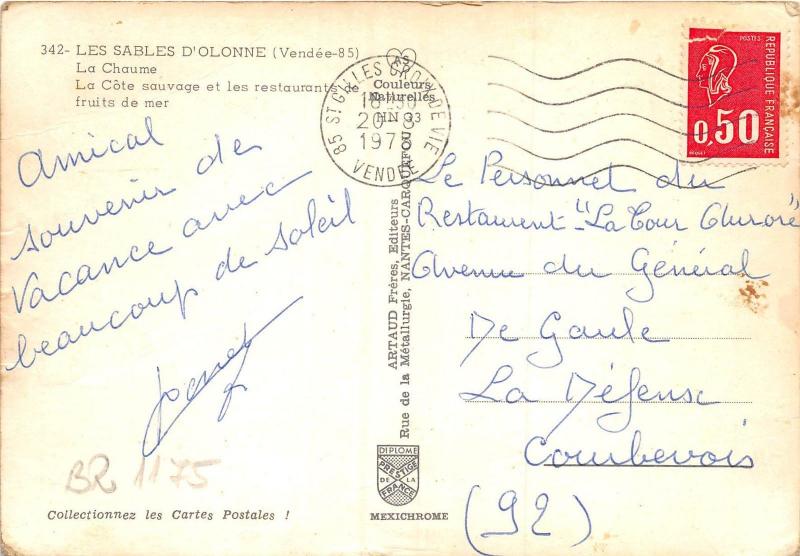 342- LES SABLES D'OLONNE (Vendée-85)
La Chaume
La Côte sauvage et les restaurants de
fruits de mer
Amical
souvenir de
Vacance avec
beaucoup de soleil
BR 1175
Collectionnez les Cartes Postales !
85 ST GILLES CROIX DE VIE
18H30
20-8
VENDÉE
Couleurs
Naturelles
HN 33
ARTAUD Frères, Editeurs
Rue de la Métallurgie, NANTES-CARQUEFOU
DIPLOME
PRESTIGE
DE LA
FRANCE
MEXICHROME
POSTES
REPUBLIQUE FRANÇAISE
0,50
BEQUET
Le Personnel du
Restaurant "La Tour
Avenue du Général
De Gaule
La Défense
Courbevois
(92)